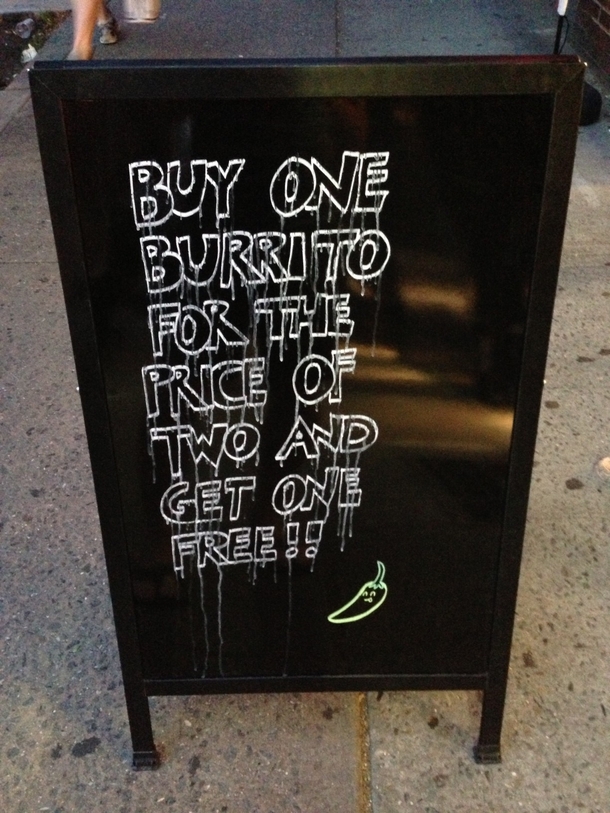 BUY ONE
BURRITO
FOR THE
PRICE OF
TWO AND
GET ONE
FREE!!